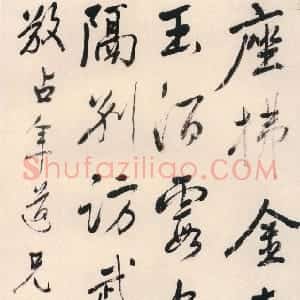 座拂金
玉酒霞
隔訪武
占年道兄
Shufaziliao.com